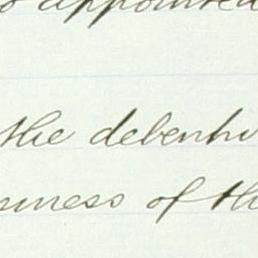 appointed
the debentu
siness of th